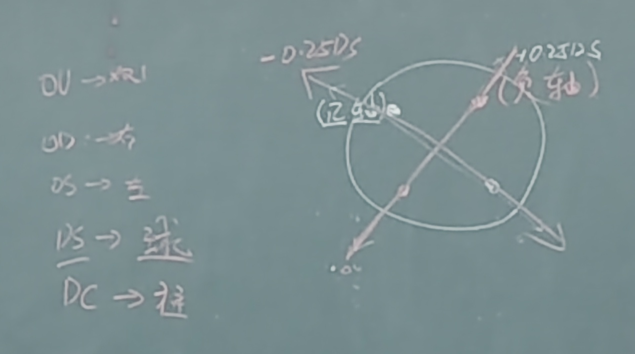 OU → 双
OD → 右
OS → 左
DS → 球
DC → 柱
-0.25DS
(正轴)
+0.25DS
(负轴)